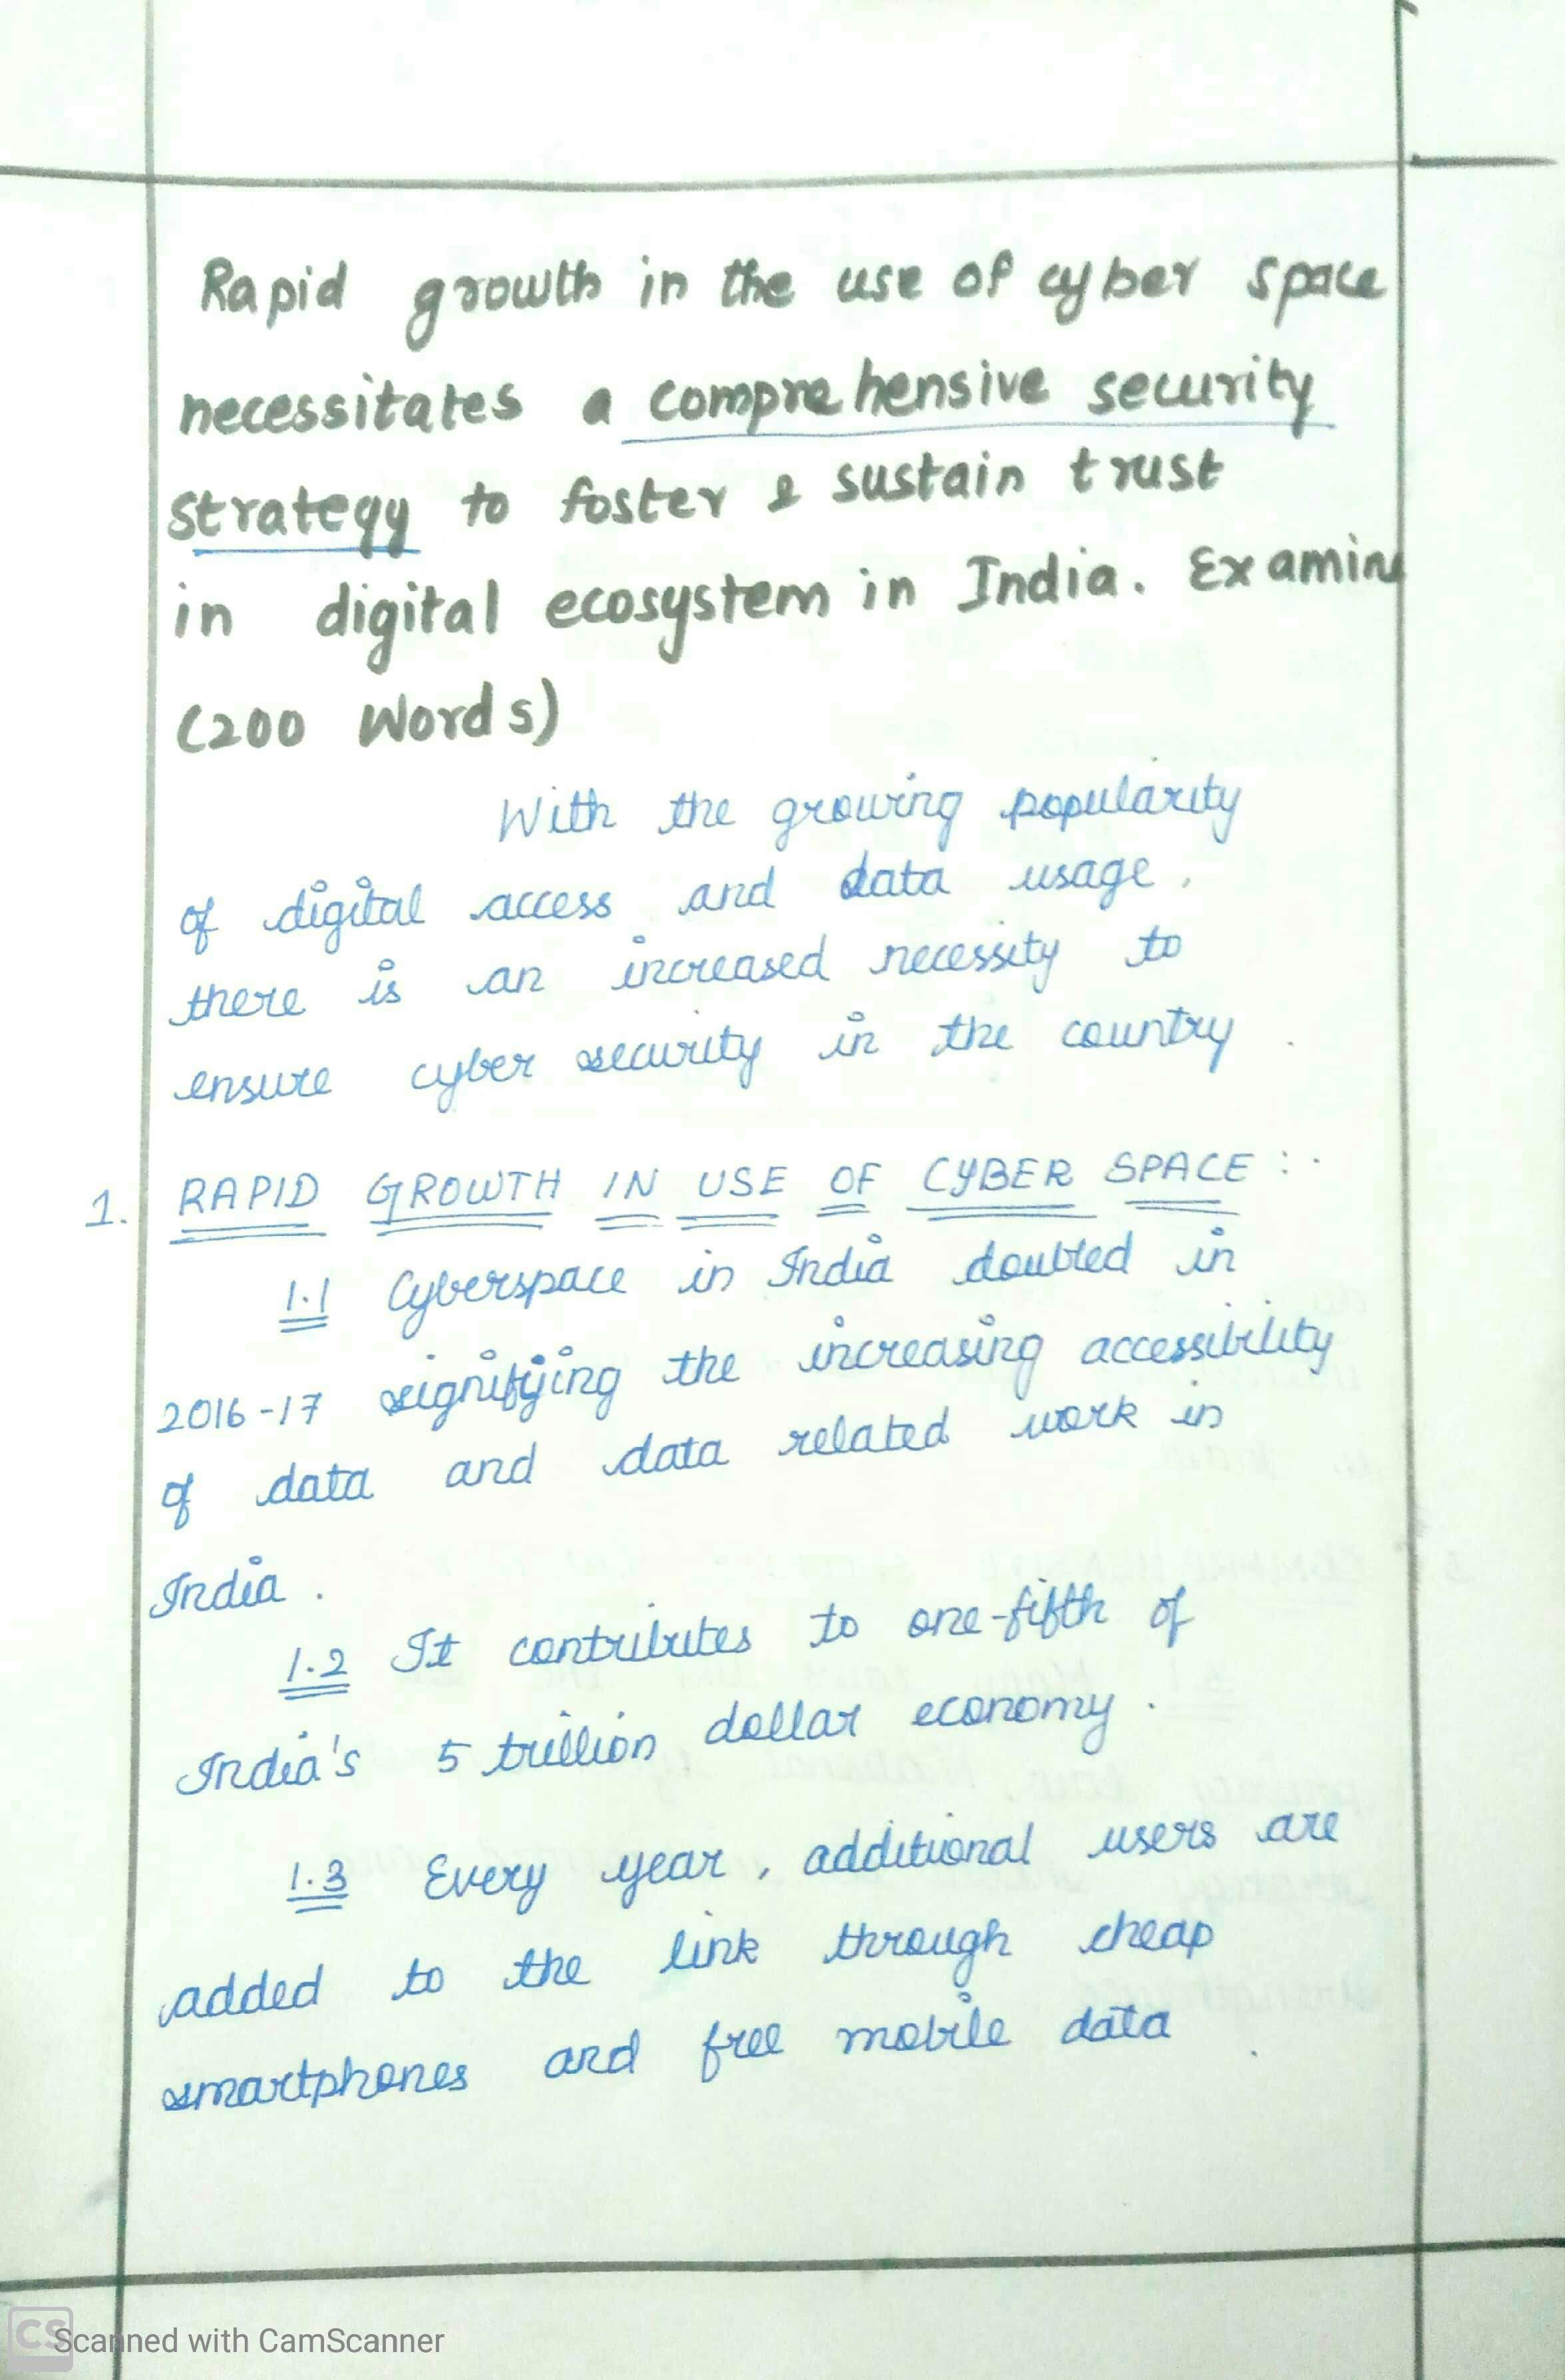 Rapid growth in the use of cyber space
necessitates a comprehensive security
strategy to foster & sustain trust
in digital ecosystem in India. Examine
(200 Words)
With the growing popularity
of digital access and data usage,
there is an increased necessity to
ensure cyber security in the country.
1. RAPID GROWTH IN USE OF CYBER SPACE :-
1.1 Cyberspace in India doubled in
2016-17 signifying the increasing accessibility
of data and data related work in
India.
1.2 It contributes to one-fifth of
India's 5 trillion dollar economy.
1.3 Every year, additional users are
added to the link through cheap
smartphones and free mobile data.
CS Scanned with CamScanner